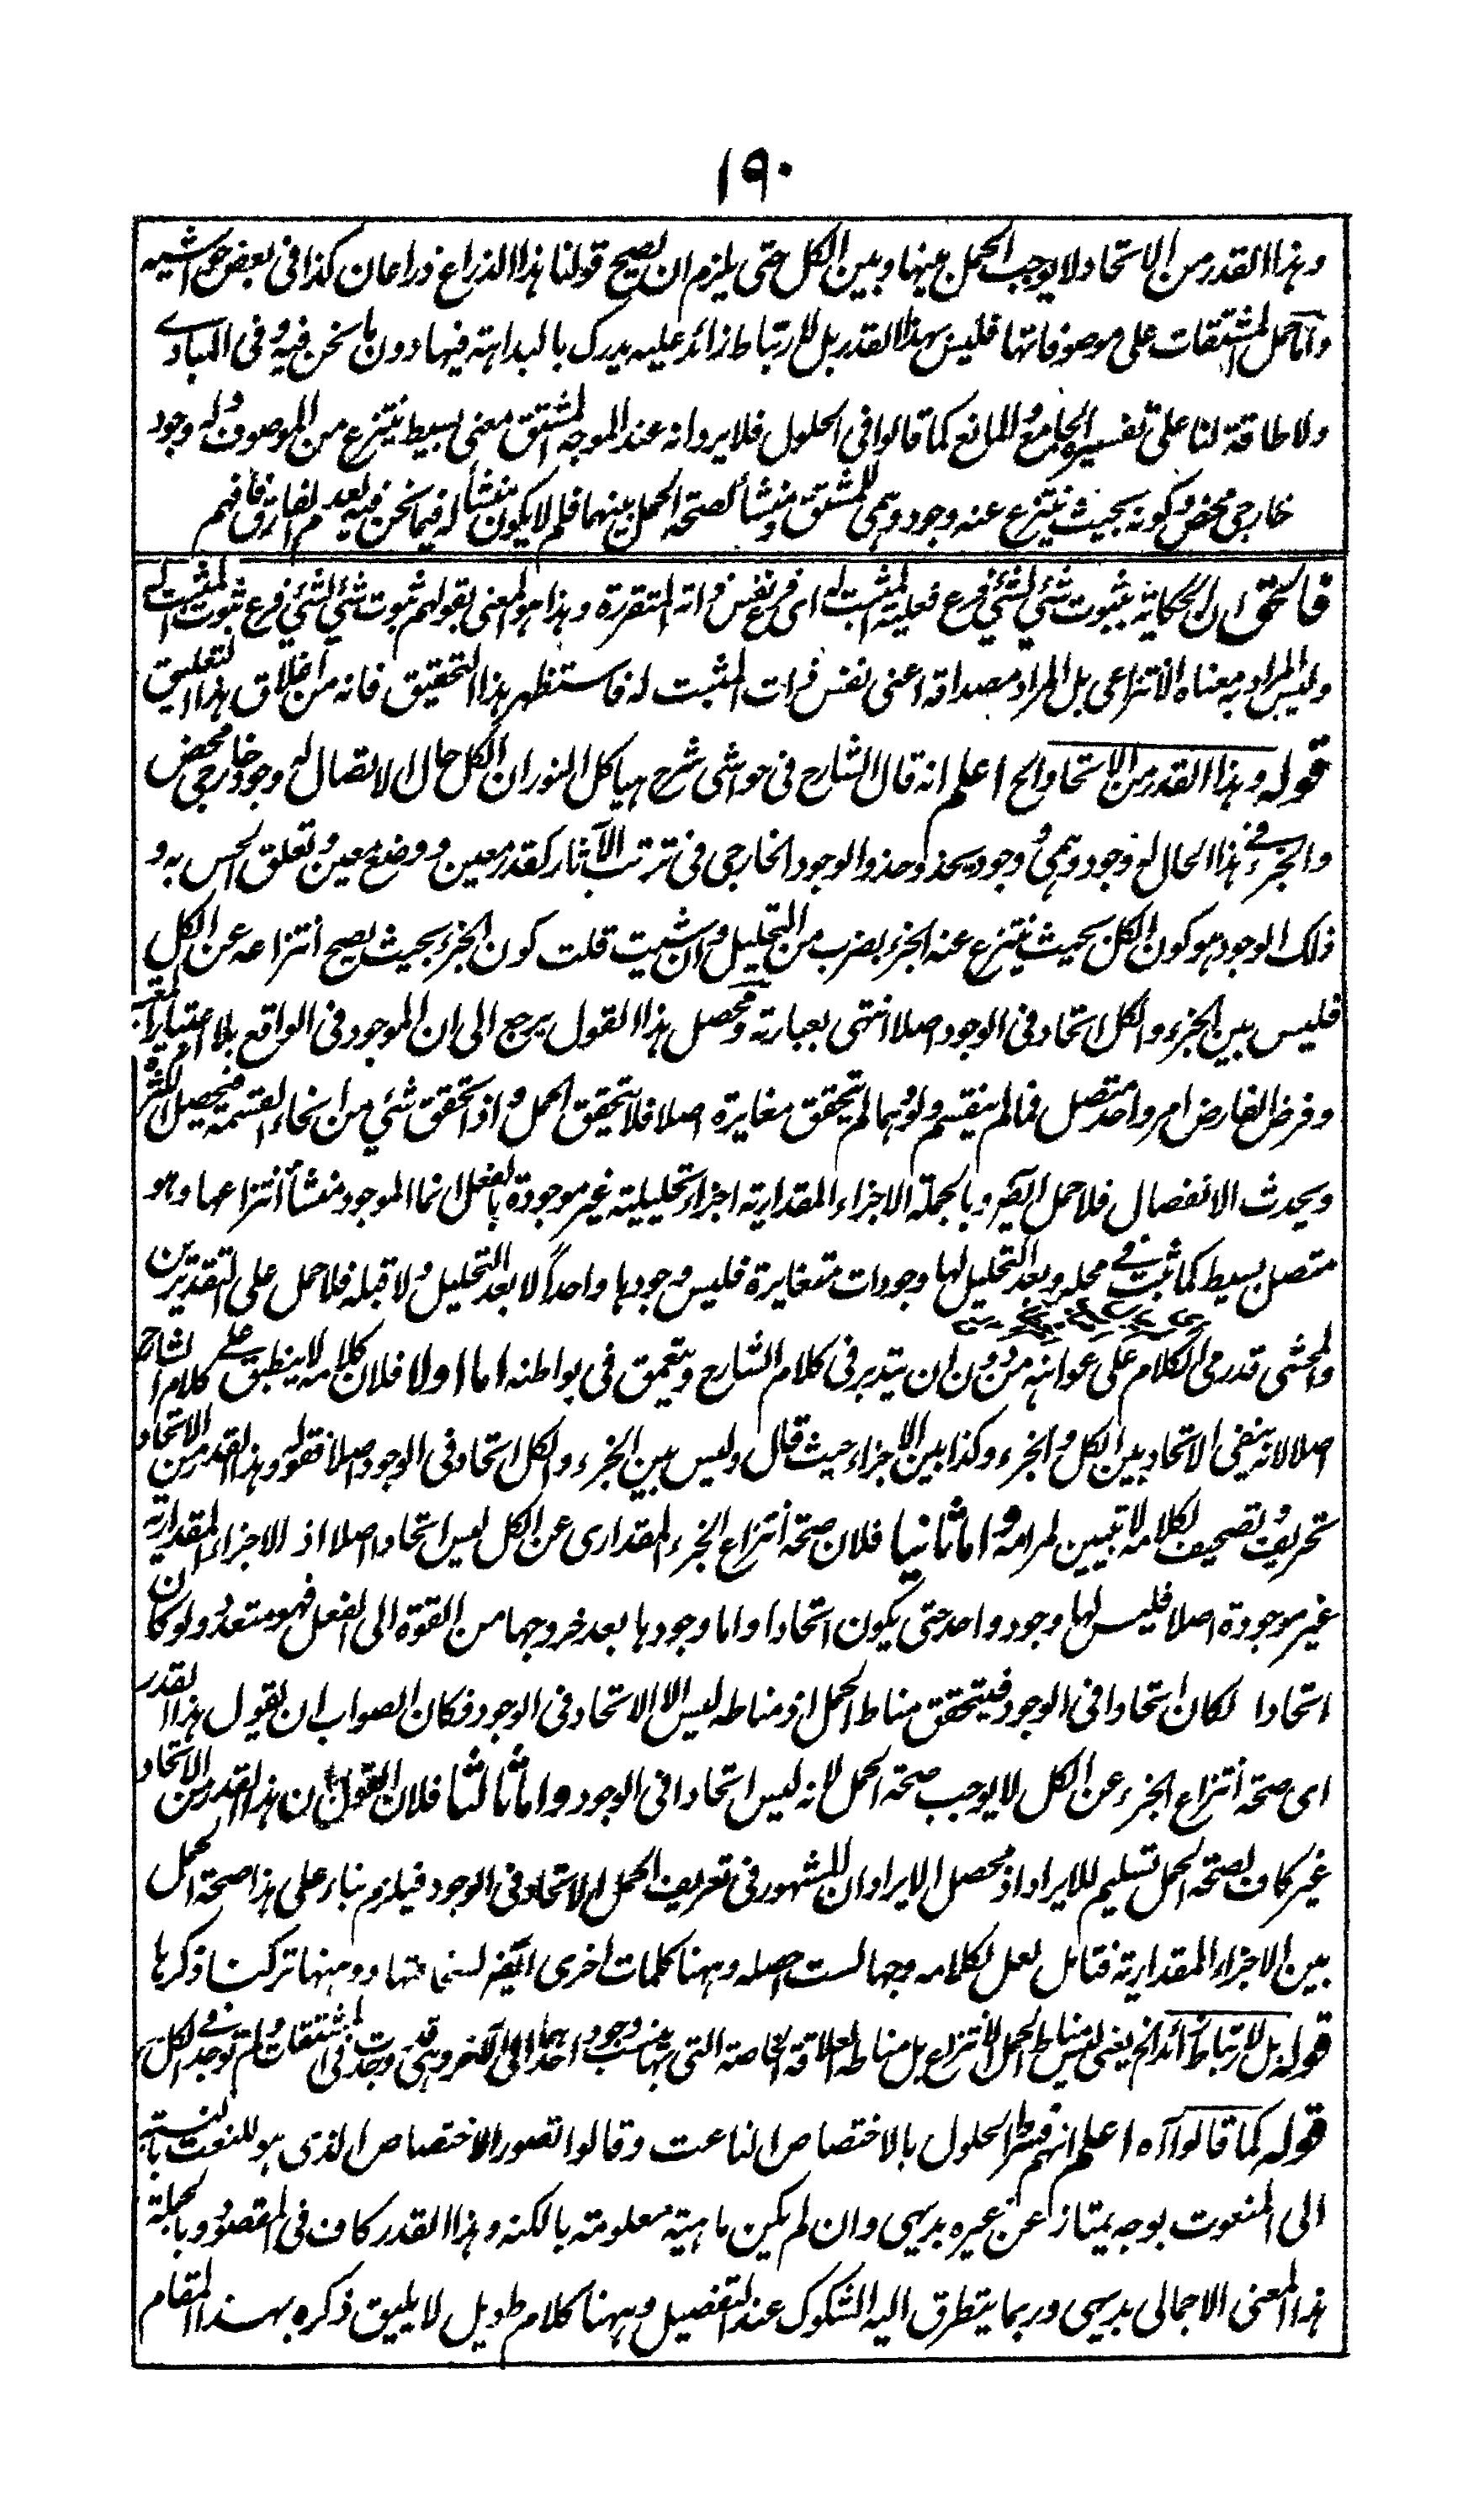 ١٩٠
وهذا القدر من الاتحاد لا يوجب الحمل بينها وبين الكل حتى يلزم ان يصح قولنا هذا الذراع ذراعان كذا في بعض حواشيه
واما حمل المشتقات على موصوفاتها فليس بهذا القدر بل لارتباط زائد عليه يدرك بالبداهة فيها دون ما نحن فيه وفى المبادى
ولا طاقة لنا على تفسيره الجامع والمانع كما قالوا في الحلول فلا يرد انه عند الموجه المشتق معنى بسيط ينتزع من الموصوف وله وجود
خارجي محض وكونه بحيث ينتزع عنه وجود وهمي للمشتق ومنشأ لصحة الحمل بينهما فلم لا يكون منشأ له فيما نحن فيه لعدم الفارق فافهم
فالحق ان الحكاية بثبوت شئ لشئ فرع فعلية المثبت له اى فرع نفس ذاته المتقررة وهذا هو المعنى بقولهم ثبوت شئ لشئ فرع ثبوت المثبت له
وليس المراد به معناه الانتزاعى بل المراد مصداقه اعنى نفس ذات المثبت له فاستظهر هذا التحقيق فانه من اغلاق هذا التعليق
قوله وهذا القدر من الاتحاد الخ اعلم انه قال الشارح فى حواشى شرح هياكل النور ان الكل حال الاتصال له وجود خارجى محض
والجزء فى هذا الحال له وجود وهمى ووجود يحذو حذو الوجود الخارجى فى ترتب الآثار كقدر معين ووضع معين وتعلق الحس به و
ذلك الوجود هو كون الكل بحيث ينتزع عنه الجزء بضرب من التحليل وان شيت قلت كون الجزء بحيث يصح انتزاعه عن الكل
فليس بين الجزء والكل اتحاد فى الوجود اصلا انتهى بعبارته ومحصل هذا القول يرجع الى ان الموجود فى الواقع بلا اعتبار المعتبر
وفرض الفارض امر واحد متصل فما لم ينقسم ولو وهما لم يتحقق مغايرة اصلا فلا يتحقق الحمل واذا تحقق شئ من انحاء القسمة فيحصل الكثرة
ويحدث الانفصال فلا حمل ايضا وبالجملة الاجزاء المقدارية اجزاء تحليلية غير موجودة بالفعل انما الموجود منشأ انتزاعها وهو
متصل بسيط كما ثبت فى محله وبعد التحليل لها وجودات متغايرة فليس وجودها واحداً لا بعد التحليل ولا قبله فلا حمل على التقديرين
والمحشى قد رمى الكلام على عواهنه من دون ان يتدبر فى كلام الشارح ويتعمق فى بواطنه اما اولا فلان كلامه لا ينطبق على كلام الشارح
اصلا لانه ينفى الاتحاد بين الكل والجزء وكذا بين الاجزاء حيث قال وليس بين الجزء والكل اتحاد فى الوجود اصلا فقوله وهذا القدر من الاتحاد
تحريف وتصحيف لكلامه لا تبيين لمرامه واما ثانيا فلان صحة انتزاع الجزء المقدارى عن الكل ليس اتحادا اصلا اذ الاجزاء المقدارية
غير موجودة اصلا فليس لها وجود واحد حتى يكون اتحادا واما وجودها بعد خروجها من القوة الى الفعل فهو متعدد ولو كان
اتحادا لكان اتحادا فى الوجود فيتحقق مناط الحمل اذ مناطه ليس الا الاتحاد فى الوجود فكان الصواب ان يقول هذا القدر
اى صحة انتزاع الجزء عن الكل لا يوجب صحة الحمل لانه ليس اتحادا فى الوجود واما ثالثا فلان القول بان هذا القدر من الاتحاد
غير كاف لصحة الحمل تسليم للايراد اذ محصل الايراد ان المشهور فى تعريف الحمل الاتحاد فى الوجود فيلزم بناء على هذا صحة الحمل
بين الاجزاء المقدارية فتامل لعل لكلامه وجها لست احصله وههنا كلمات اخرى ايضا لسخافتها ووهنها تركنا ذكرها
قوله بل لارتباط زائد الخ يعنى ليس مناط الحمل الانتزاع بل مناطه العلاقة الخاصة التى بها ينسب وجود احدهما الى الآخر وهى قد وجدت فى المشتقات ولم توجد فى الكل
قوله كما قالوا آه اعلم انهم فسروا الحلول بالاختصاص الناعت وقالوا تصور الاختصاص الذى هو للنعت بالنسبة
الى المنعوت بوجه يمتاز عن غيره بديهى وان لم يكن ماهيته معلومة بالكنه وهذا القدر كاف فى المقصود وبالجملة
هذا المعنى الاجمالى بديهى وربما يتطرق اليه الشكوك عند التفصيل وههنا كلام طويل لا يليق ذكره بهذا المقام